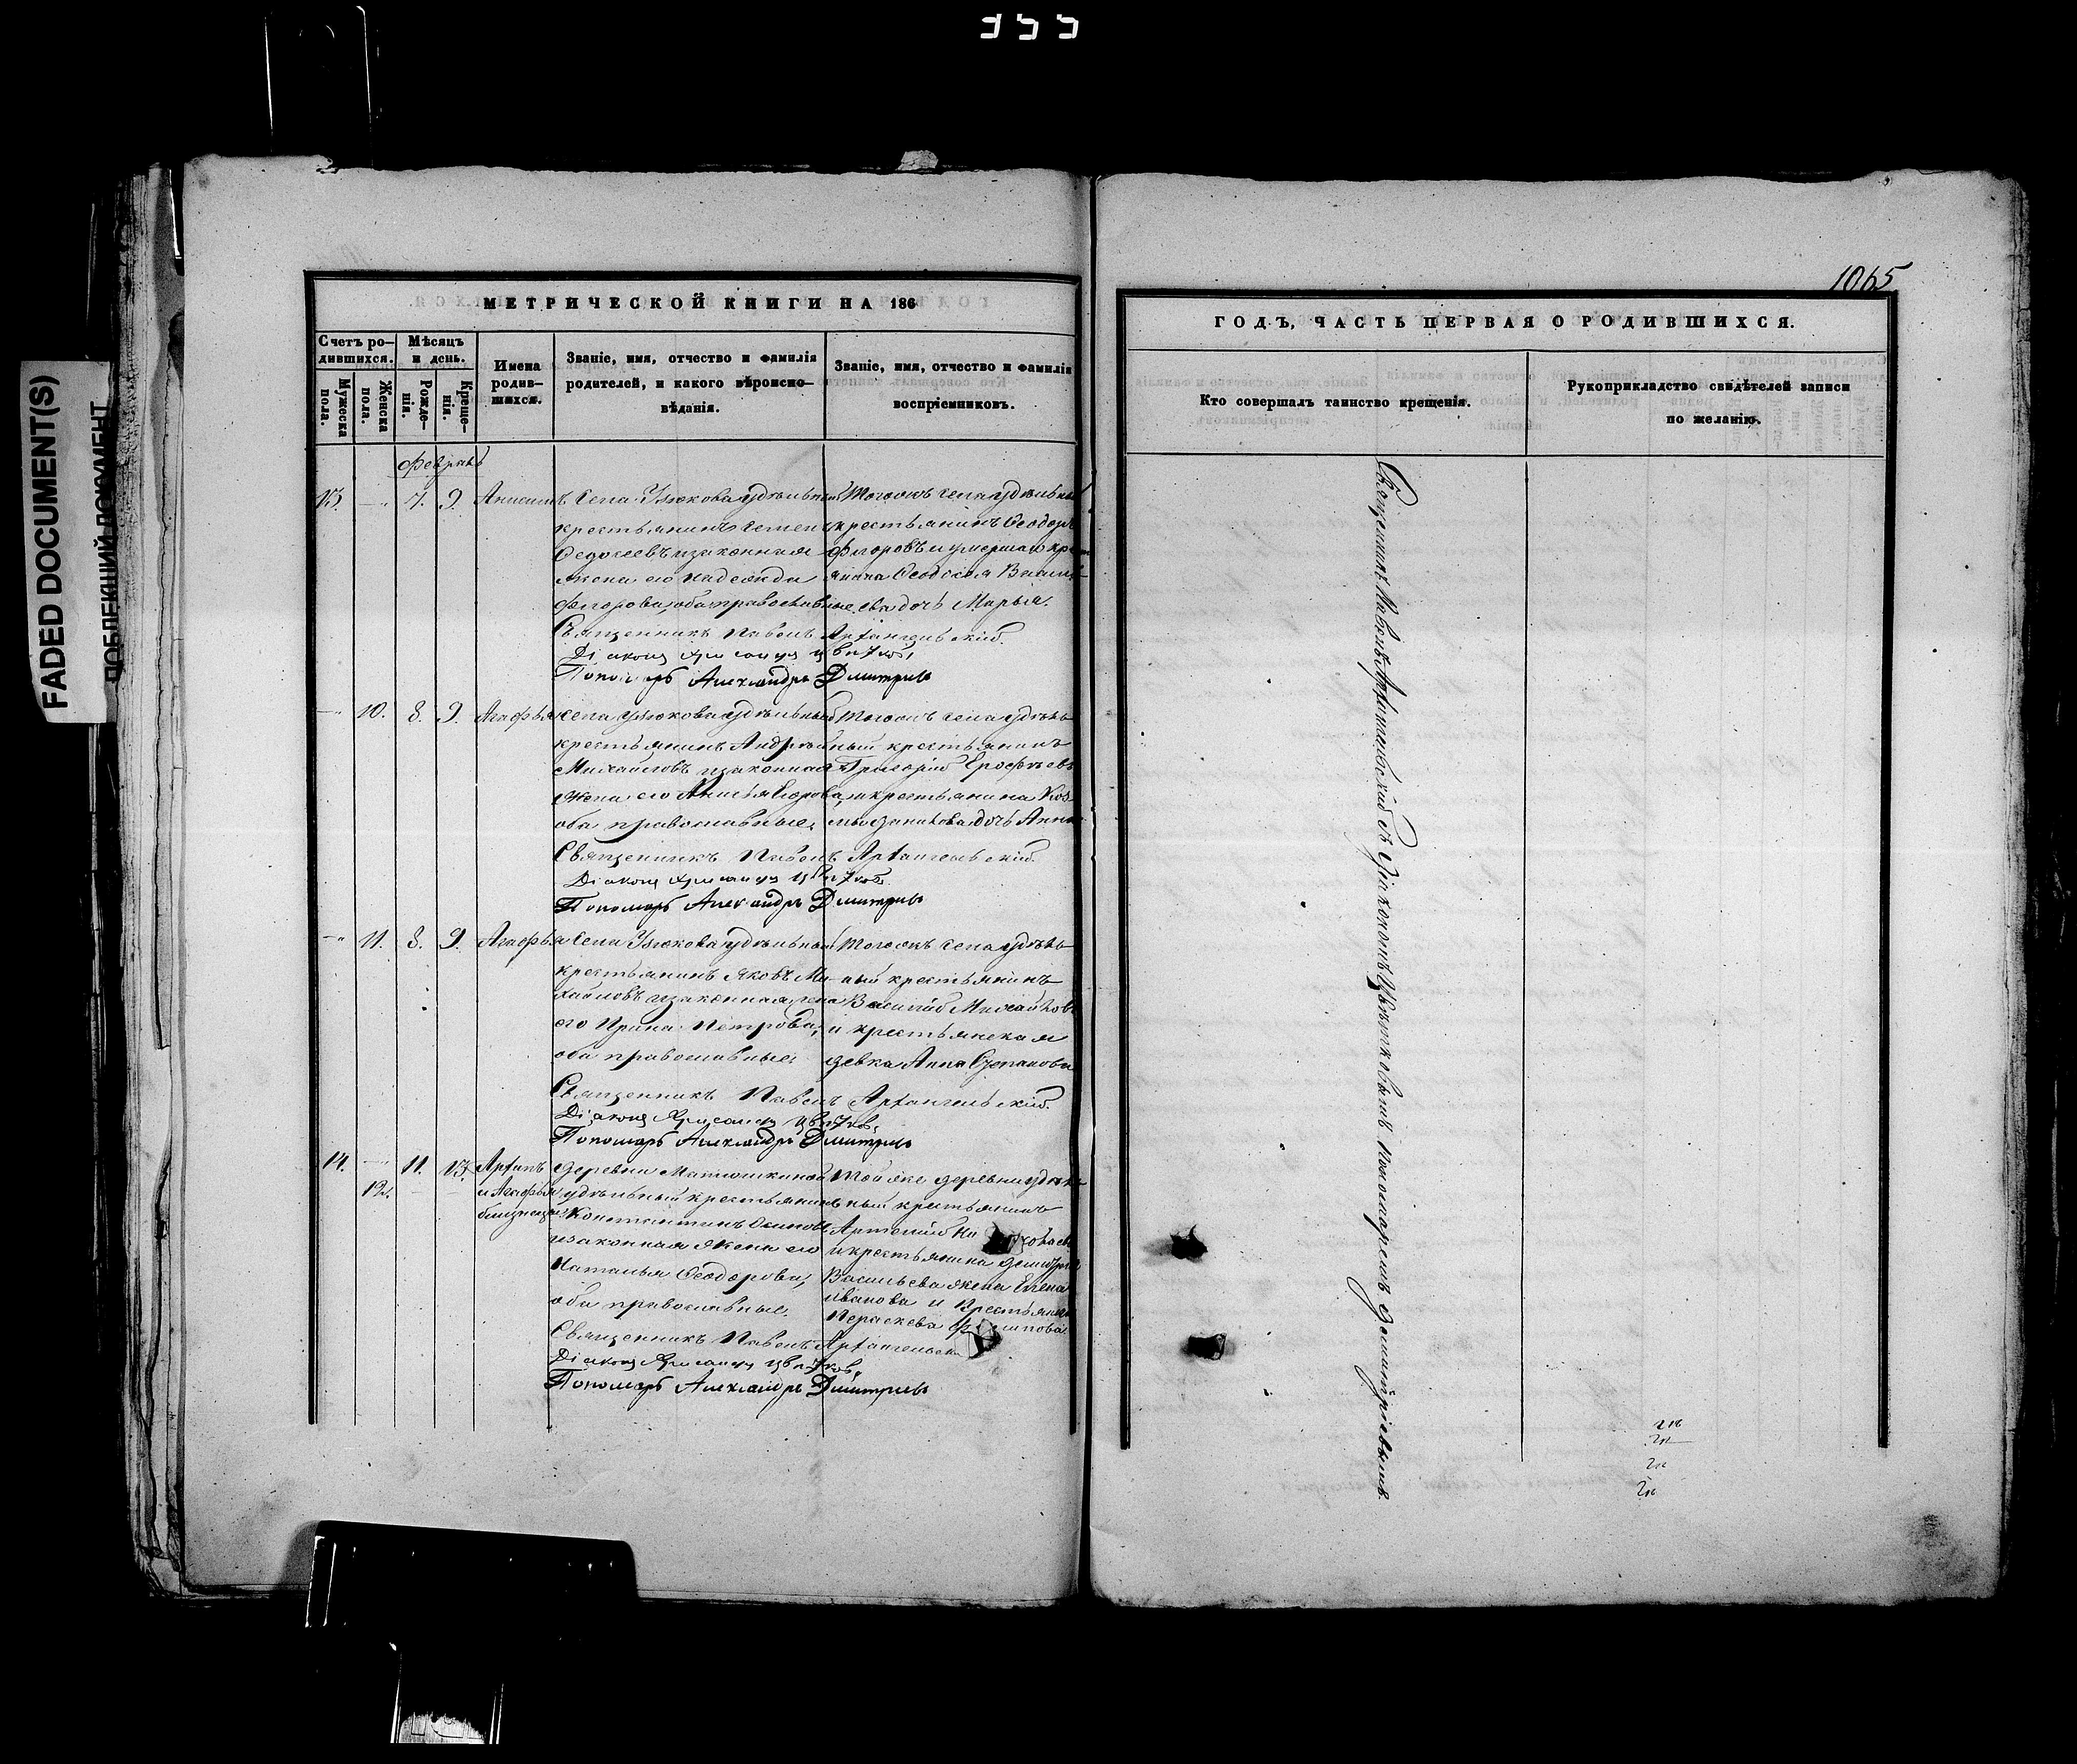 355
FADED DOCUMENT(S)
ПОБЛЕКШИЙ ДОКУМЕНТ
МЕТРИЧЕСКОЙ КНИГИ НА 186
Счетъ ро-
дившихся.
Мужеска
пола.
Женска
пола.
Мѣсяцъ
и день.
Рожде-
нія.
Креще-
нія.
Имена
родив-
шихся.
Званіе, имя, отчество и фамилія
родителей, и какого вѣроиспо-
вѣданія.
Званіе, имя, отчество и фамилія
воспріемниковъ.
февраль
13. 7. 9. Анисимъ
Села Узюкова удѣльный
крестьянинъ Семенъ
изаконная
жена его Надежда
православные
Тогожъ села удѣльный
крестьянинъ Ѳеодоръ
дочь Марья.
Священникъ Павелъ Архангельскій
Діаконъ
Пономарь Александръ Дмитріевъ
10. 8. 9. Агафья
Села Узюкова удѣльный
крестьянинъ Андрей
Михайловъ изаконная
жена его Анисья Егорова,
оба православные,
Тогожъ села удѣль
ный крестьянинъ
Григорій Ерофѣевъ
и крестьянина Коз
дочь Анна
Священникъ Павелъ Архангельскій
Діаконъ
Пономарь Александръ Дмитріевъ
11. 8. 9. Агафья
Села Узюкова удѣльный
крестьянинъ Яковъ Ми-
хайловъ изаконная жена
его Ирина Петрова,
оба православные
Тогожъ села удѣль
ный крестьянинъ
Василій Михайловъ
и крестьянская
девка Анна Степанова
Священникъ Павелъ Архангельскій
Діаконъ
Пономарь Александръ Дмитріевъ
14. 11. 13. Архипъ
12. и Агафья
близнецы
Деревни Матюшкиной
удѣльный крестьянинъ
Константинъ Осиповъ
изаконная жена его
Наталья Ѳеодорова,
оба православные.
Тойже деревни удѣль
ный крестьянинъ
Артемій
и крестьянина Димитрія
Васильева жена Елена
Иванова и крестьянка
Параскева
Священникъ Павелъ Архангельскій
Діаконъ
Пономарь Александръ Дмитріевъ
1065
ГОДЪ, ЧАСТЬ ПЕРВАЯ О РОДИВШИХСЯ.
Кто совершалъ таинство крещенія.
Рукоприкладство свидѣтелей записи
по желанію.
Священникъ Павелъ Архангельскій съ Діакономъ Цвѣтковымъ и пономаремъ Димитріевымъ.